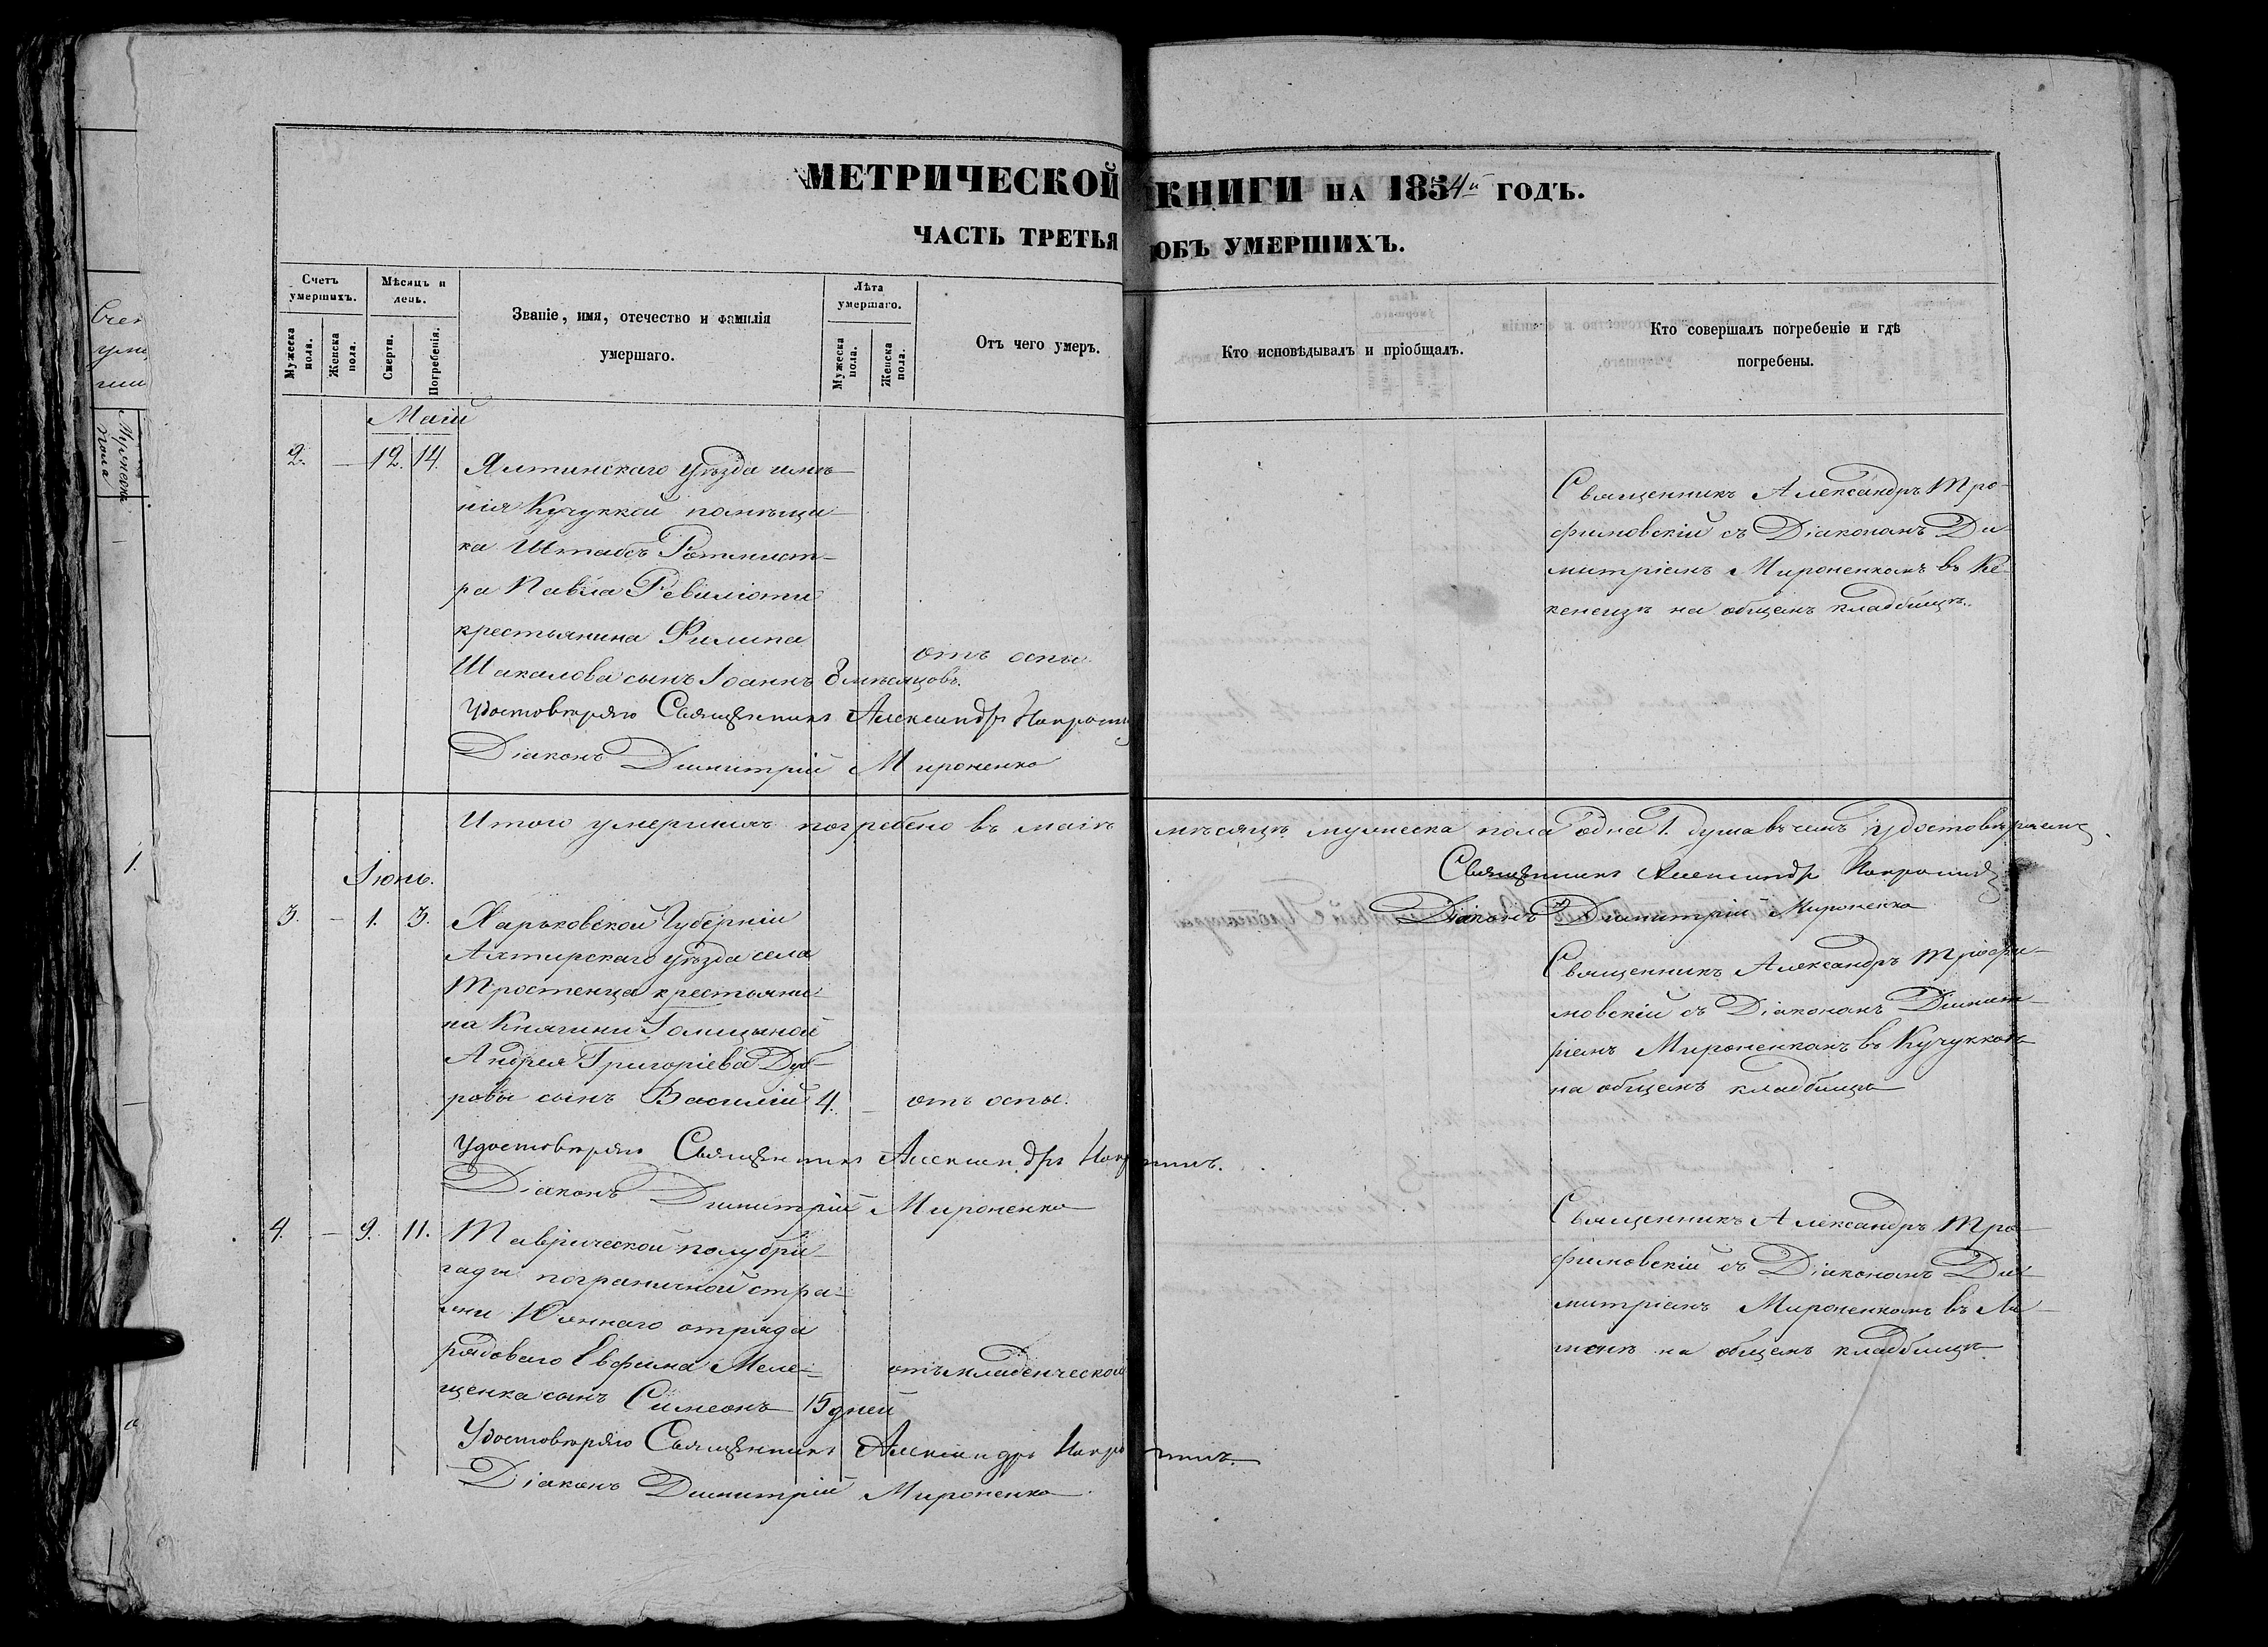 МЕТРИЧЕСКОЙ КНИГИ НА 1854й ГОДЪ.
ЧАСТЬ ТРЕТЬЯ ОБЪ УМЕРШИХЪ.
Счетъ умершихъ.
Мужеска пола.
Женска пола.
Мѣсяцъ и день.
Смерти.
Погребенія.
Званіе, имя, отечество и фамилія
умершаго.
Лѣта умершаго.
Мужеска пола.
Женска пола.
Отъ чего умеръ.
Кто исповѣдывалъ и пріобщалъ.
Кто совершалъ погребеніе и гдѣ
погребены.
Маій
2. — 12. 14. Ялтинскаго уѣзда имѣ-
нія Кучуккой помѣщи-
ка Штабсъ Ротмист-
ра Павла Ревиліоти
крестьянина Филипа
Шакалова сынъ Іоаннъ 8 мѣсяцовъ.
отъ оспы
Священникъ Александръ Тро-
фимовскій съ Діакономъ Ди-
митріемъ Мироненкомъ въ Ке-
кенеизѣ на общемъ кладбищѣ.
Удостовѣряю Священникъ Александръ
Діаконъ Димитрій Мироненко
Итого умершихъ погребено въ маіѣ мѣсяцѣ мужеска пола одна 1. душа въ чемъ удостовѣряемъ
Священникъ Александръ
Діаконъ Димитрій Мироненко
Іюнь.
3. — 1. 3. Харьковской Губерніи
Ахтирскаго уѣзда села
Тростенца крестьяни-
на Княгини Голицыной
Андрея Григоріева Дуб-
ровы сынъ Василій 4. — отъ оспы.
Священникъ Александръ Трофи-
мовскій съ Діакономъ Димит-
ріемъ Мироненкомъ въ Кучуккоѣ
на общемъ кладбищѣ
Удостовѣряю Священникъ Александръ
Діаконъ Димитрій Мироненко
4. — 9. 11. Таврической полубри-
гады пограничной стра-
жи Южнаго отряда
рядоваго Евфима Меле-
щенка сынъ Симеонъ 15 дней
отъ младенческой
Священникъ Александръ Тро-
фимовскій съ Діакономъ Ди-
митріемъ Мироненкомъ въ Ли-
менѣ на общемъ кладбищѣ
Удостовѣряю Священникъ Александръ
Діаконъ Димитрій Мироненко